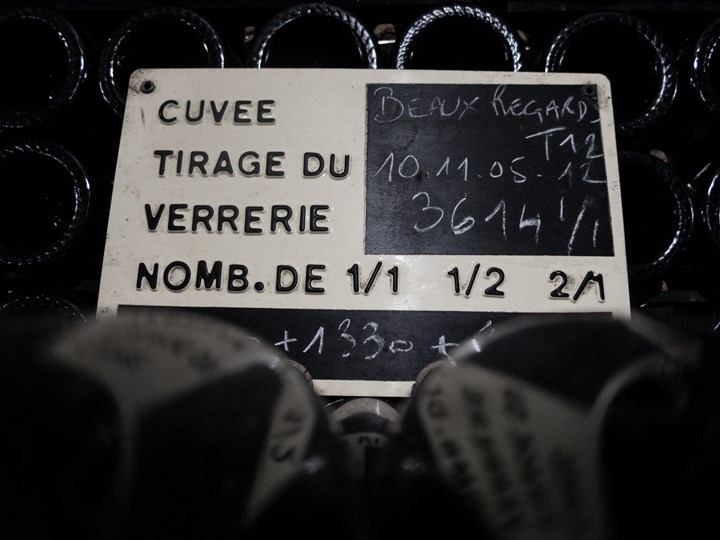 CUVEE BEAUX REGARDS
T12
TIRAGE DU 10.11.05.12
VERRERIE 3614 1/1
NOMB.DE 1/1 1/2 2/1
+1330+